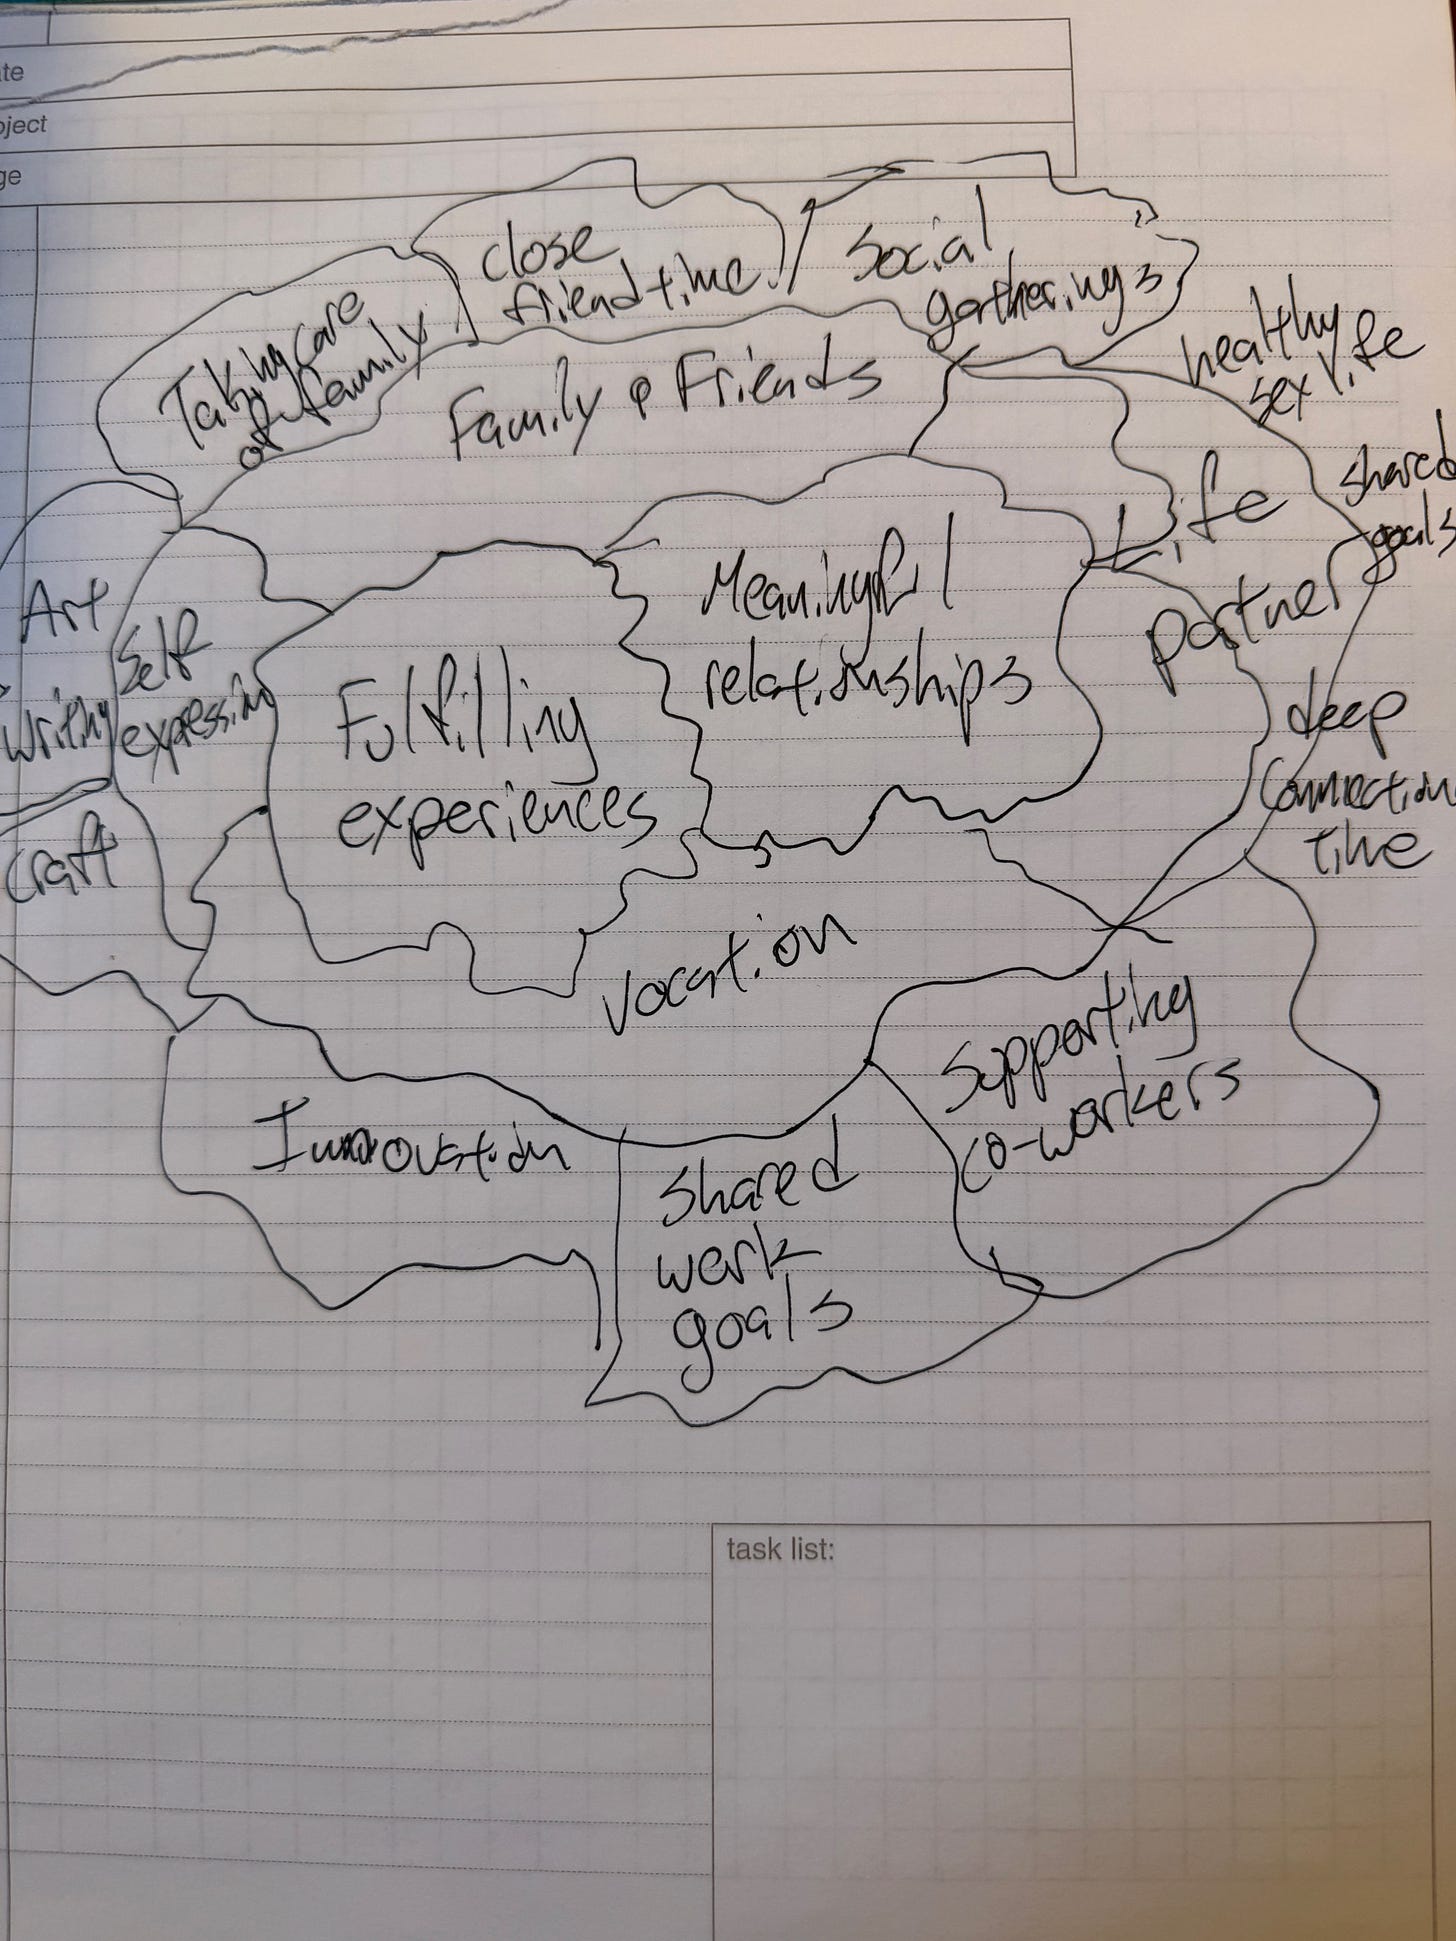 te
oject
ge
close
friend time
Social
gatherings
Taking care
of family
Family & Friends
healthy
sex life
shared
goals
Life
partner
Meaningful
relationships
Art
Writing
Self
expression
Fulfilling
experiences
deep
connection
time
Craft
Vocation
Supporting
co-workers
Innovation
Shared
work
goals
task list: